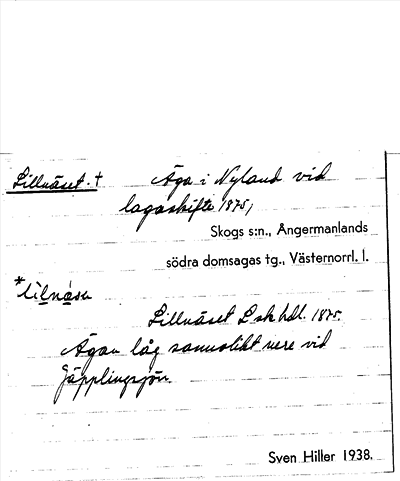 Lillnäset. † Äga i Nyland vid
lagaskifte 1875,
Skogs s:n., Ångermanlands
södra domsagas tg., Västernorrl. l.
*lìlnǻsɛ
Lillnäset L sk hdl. 1875.
Ägan låg sannolikt nere vid
Jäpplingsjön.
Sven Hiller 1938.